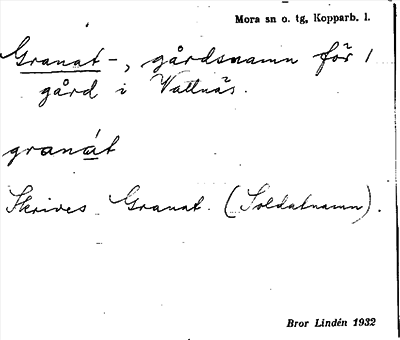 Mora sn o. tg, Kopparb. l.
Granat-, gårdsnamn för 1
gård i Vattnäs.
granát
Skrives Granat. (Soldatnamn).
Bror Lindén 1932